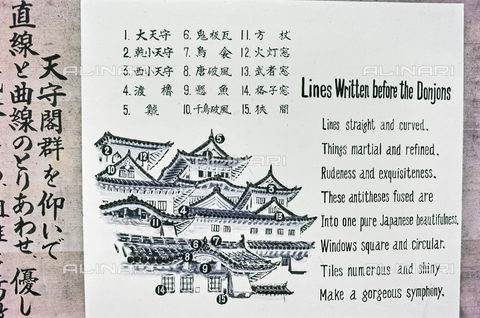 天守閣群を仰いで
直線と曲線のとりあわせ、優し
1. 大天守 6. 鬼板瓦 11. 方杖
2. 乾小天守 7. 鳥衾 12. 火灯窓
3. 西小天守 8. 唐破風 13. 武者窓
4. 渡櫓 9. 懸魚 14. 格子窓
5. 鯱 10. 千鳥破風 15. 狭間
Lines Written before the Donjons
Lines straight and curved.
Things martial and refined.
Rudeness and exquisiteness.
These antitheses fused are
Into one pure Japanese beautifulness.
Windows square and circular.
Tiles numerous and shiny
Make a gorgeous symphony.
ALINARI
ALINARI